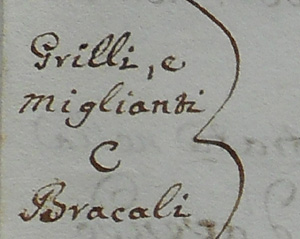 Grilli, e
miglianti
C
Bracali